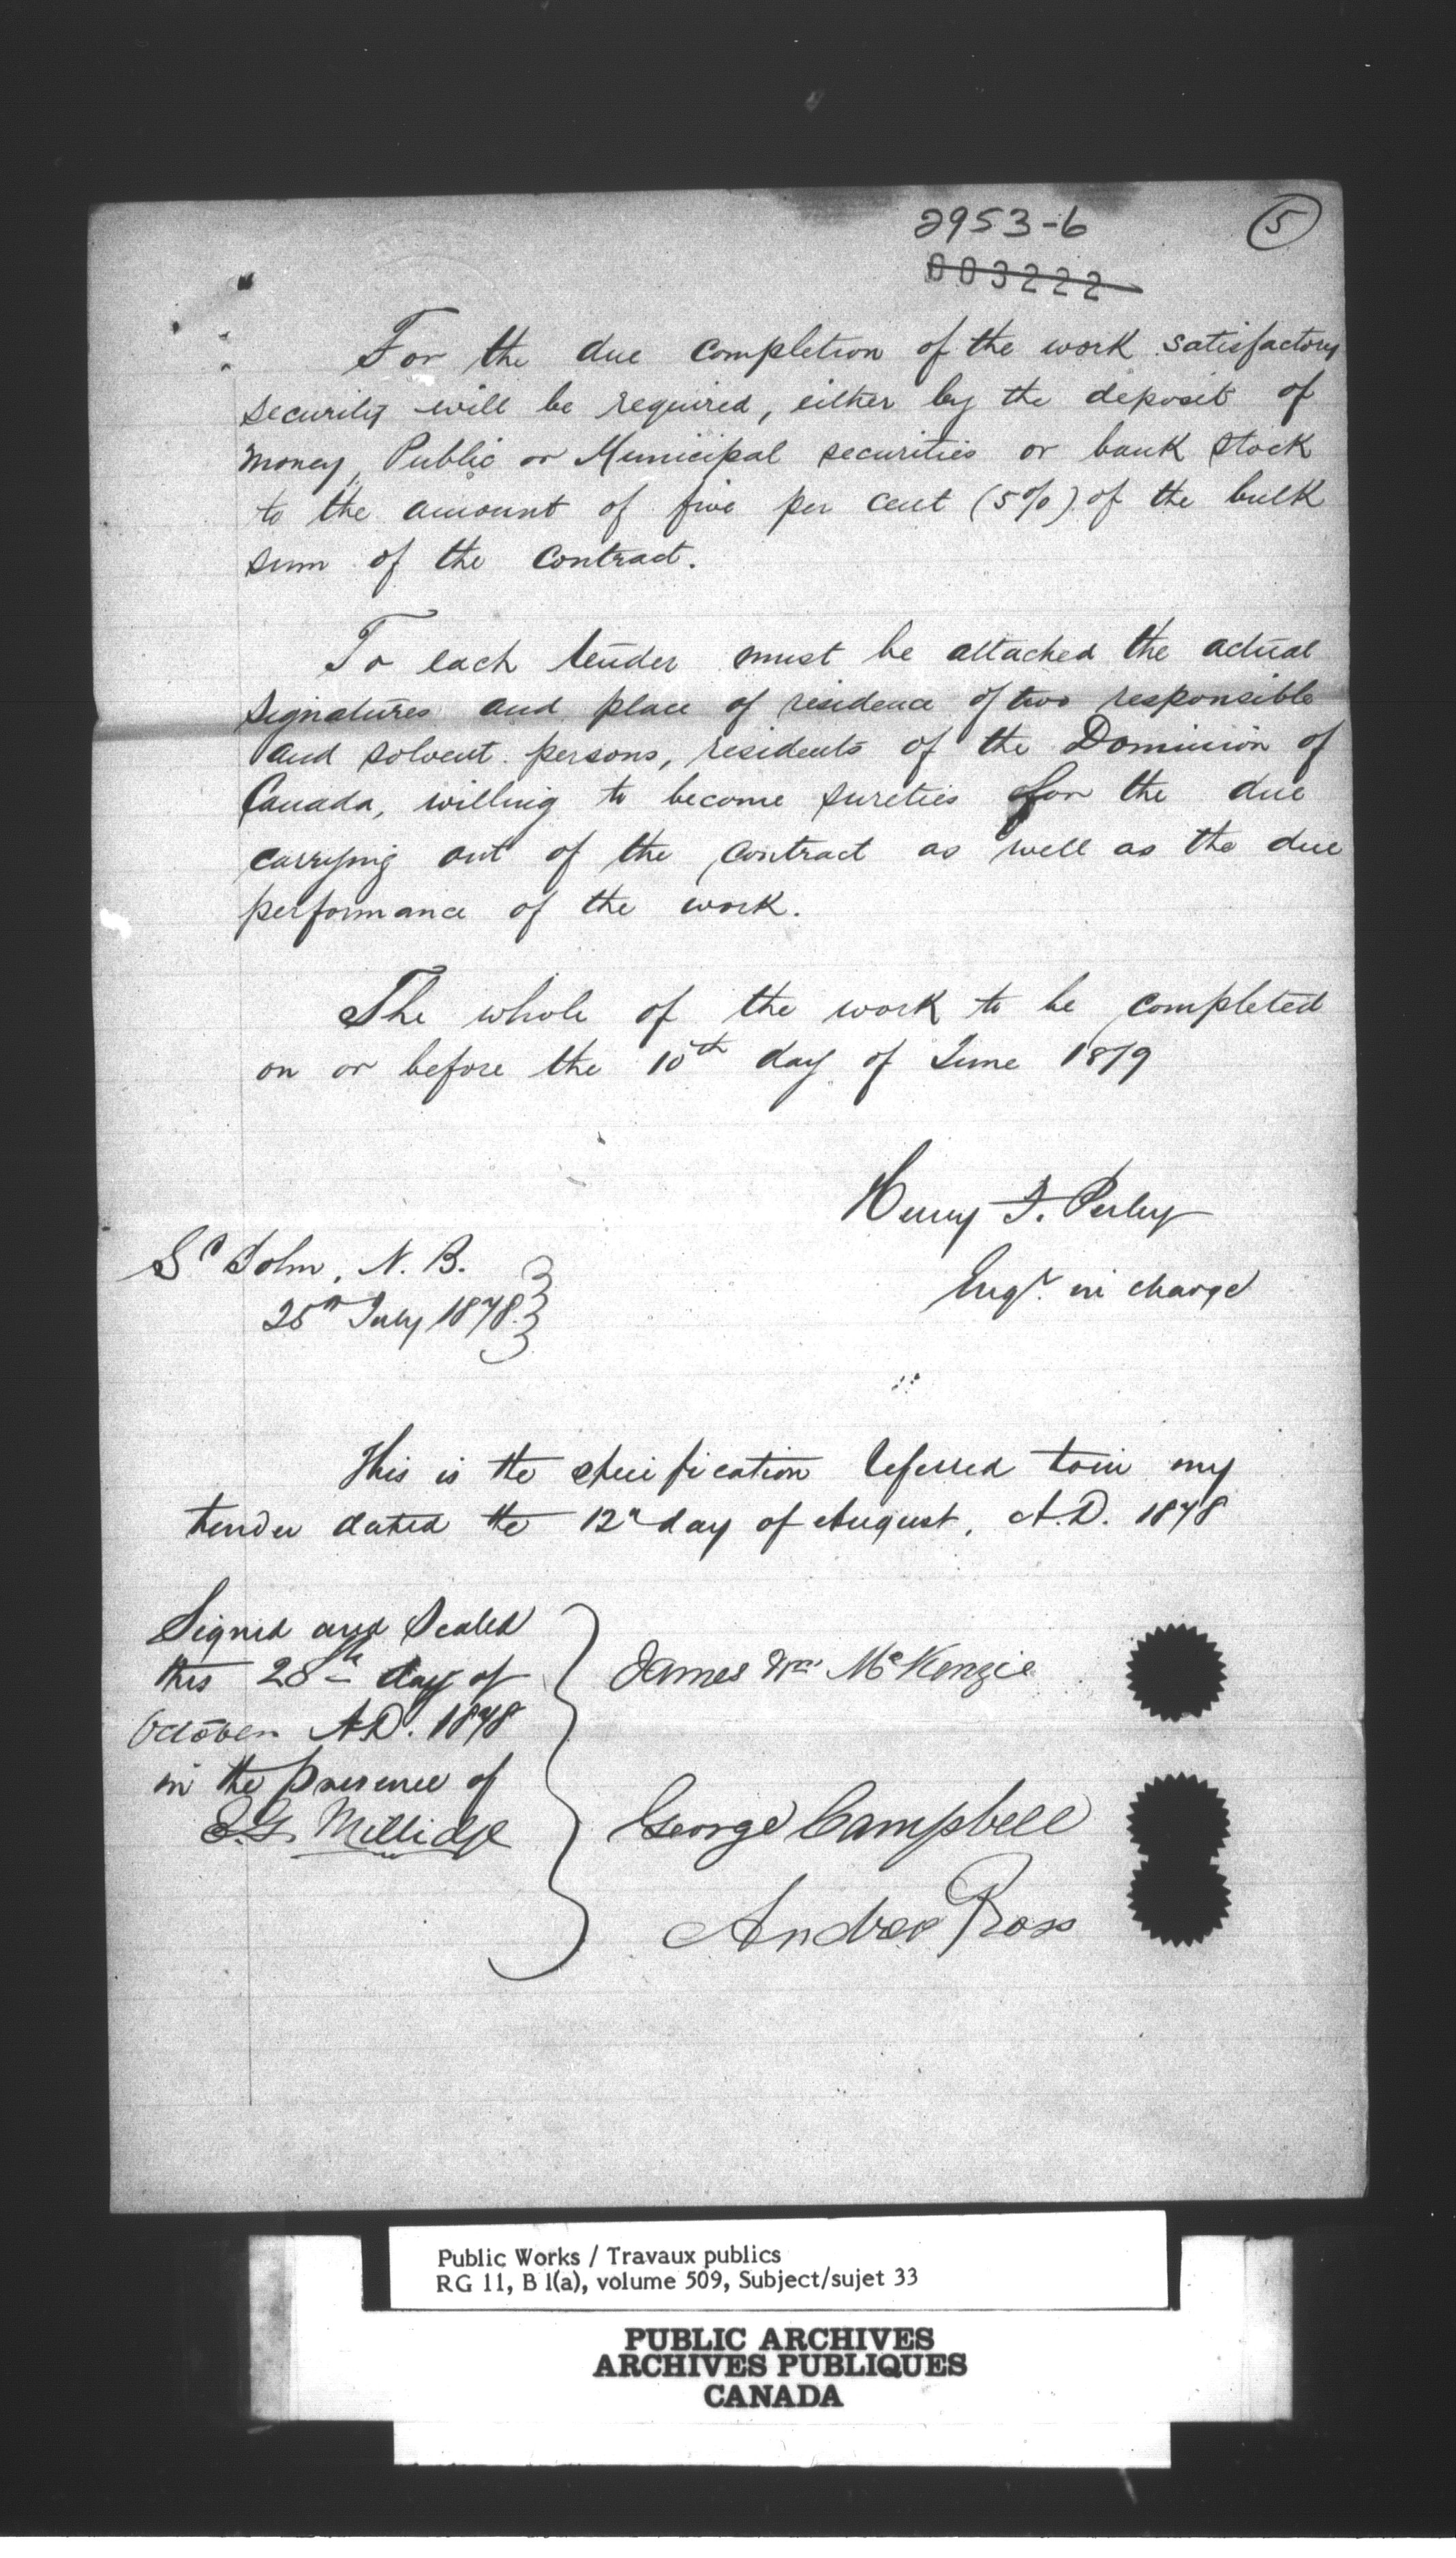 2953-6
5
003222
For the due completion of the work satisfactory
security will be required, either by the deposit of
money, Public or Municipal securities or bank stock
to the amount of five per cent (5%) of the bulk
sum of the contract.
To each tender must be attached the actual
signatures and place of residence of two responsible
and solvent persons, residents of the Dominion of
Canada, willing to become sureties for the due
carrying out of the contract as well as the due
performance of the work.
The whole of the work to be completed
on or before the 10th day of June 1879
Henry F. Perley
Engr. in charge
St John, N. B.
25th July 1878.
This is the specification referred to in my
tender dated the 12th day of August, A.D. 1878
Signed and Sealed
this 28th day of
October A.D. 1878
in the presence of
Millidge
James Wm McKenzie
George Campbell
Andrew Ross
Public Works / Travaux publics
RG 11, B 1(a), volume 509, Subject/sujet 33
PUBLIC ARCHIVES
ARCHIVES PUBLIQUES
CANADA